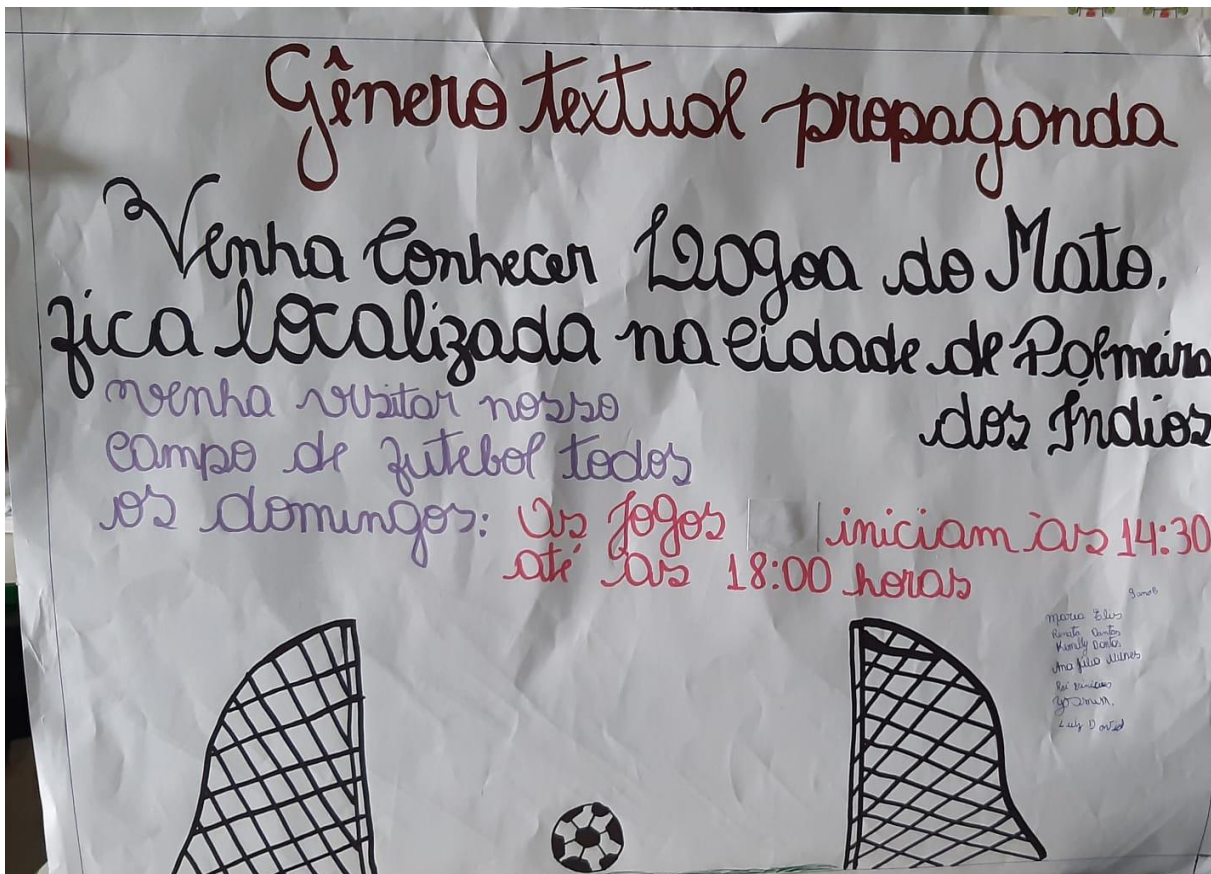 Gênero textual propaganda
Venha Conhecer Lagoa do Mato.
fica localizada na cidade de Palmeira
dos Índios
venha visitar nosso
campo de futebol todos
os domingos: Os jogos iniciam às 14:30
até às 18:00 horas
9 ano B
Maria Elis
Renata Dantas
Kemilly Dantas
Ana Júlia Nunes
Yasmin.
Luiz David